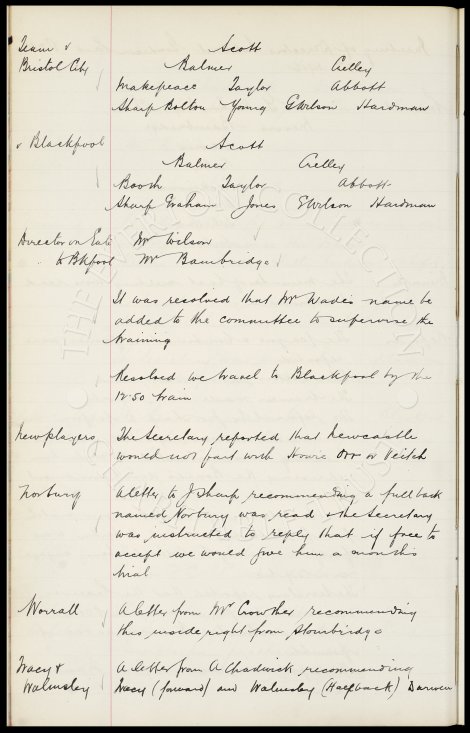 Team v Scott
Bristol City Balmer Crelley
Makepeace Taylor Abbott
Sharp Bolton Young GWilson Hardman
v Blackpool Scott
Balmer Crelley
Booth Taylor Abbott
Sharp Graham Jones GWilson Hardman
Director on Gate Mr Wilson
to Bkpool Mr Bambridge
It was resolved that Mr Wade's name be
added to the committee to supervise the
training
Resolved we travel to Blackpool by the
12.50 train
New players The Secretary reported that Newcastle
would not part with Howie Orr or Veitch
Norbury A letter to J Sharp recommending a full back
named Norbury was read & the Secretary
was instructed to reply that if free to
accept we would give him a months
trial
Worrall A letter from Mr Crowther recommending
this inside right from Stourbridge
Tracy & A letter from A Chadwick recommending
Walmsley Tracy (forward) and Walmsley (Halfback) Darwen
THE EVERTON COLLECTION